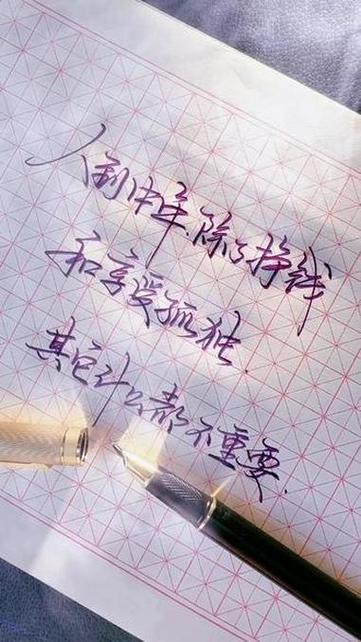 人到中年.除了挣钱
和享受孤独.
其它什么都不重要.